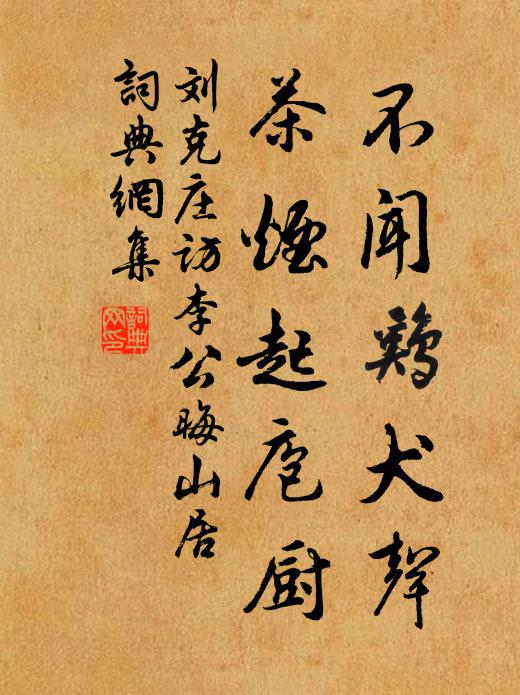 不闻鷄犬聲
茶煙起庖厨
刘克庄访李公晦山居
詞典網集
詞典网印